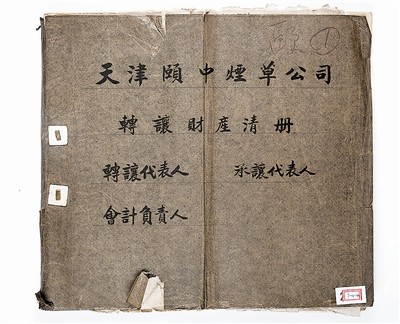 天津頤中煙草公司
轉讓財産清册
轉讓代表人 承讓代表人
會計負責人